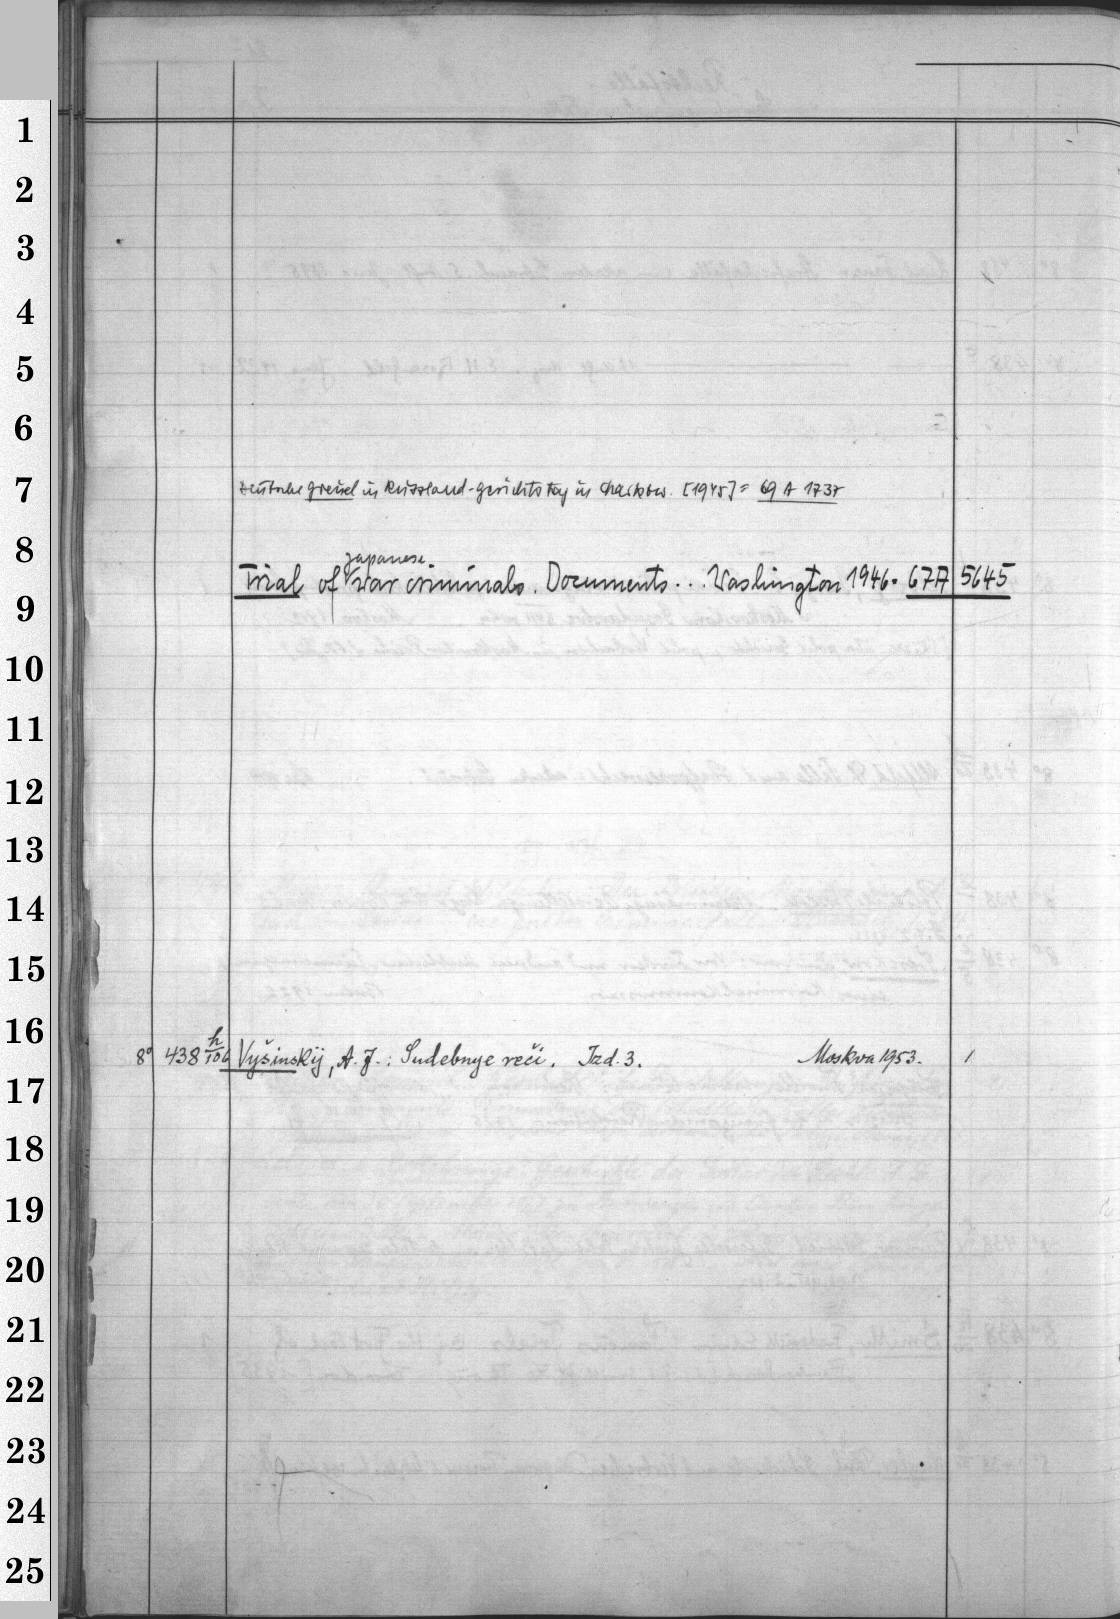 1
2
3
4
5
6
7
Deutsche Greuel in Russland-Gerichtstag in Charkow. [1945] = 69 A 1737
8
japanese
Trial of war criminals. Documents... Washington 1946. 67A 5645
9
10
11
12
13
14
15
16
8° 438 h/106 Vyšinskij, A. J.: Sudebnye reči. Izd. 3. Moskva 1953. 1
17
18
19
20
21
22
23
24
25